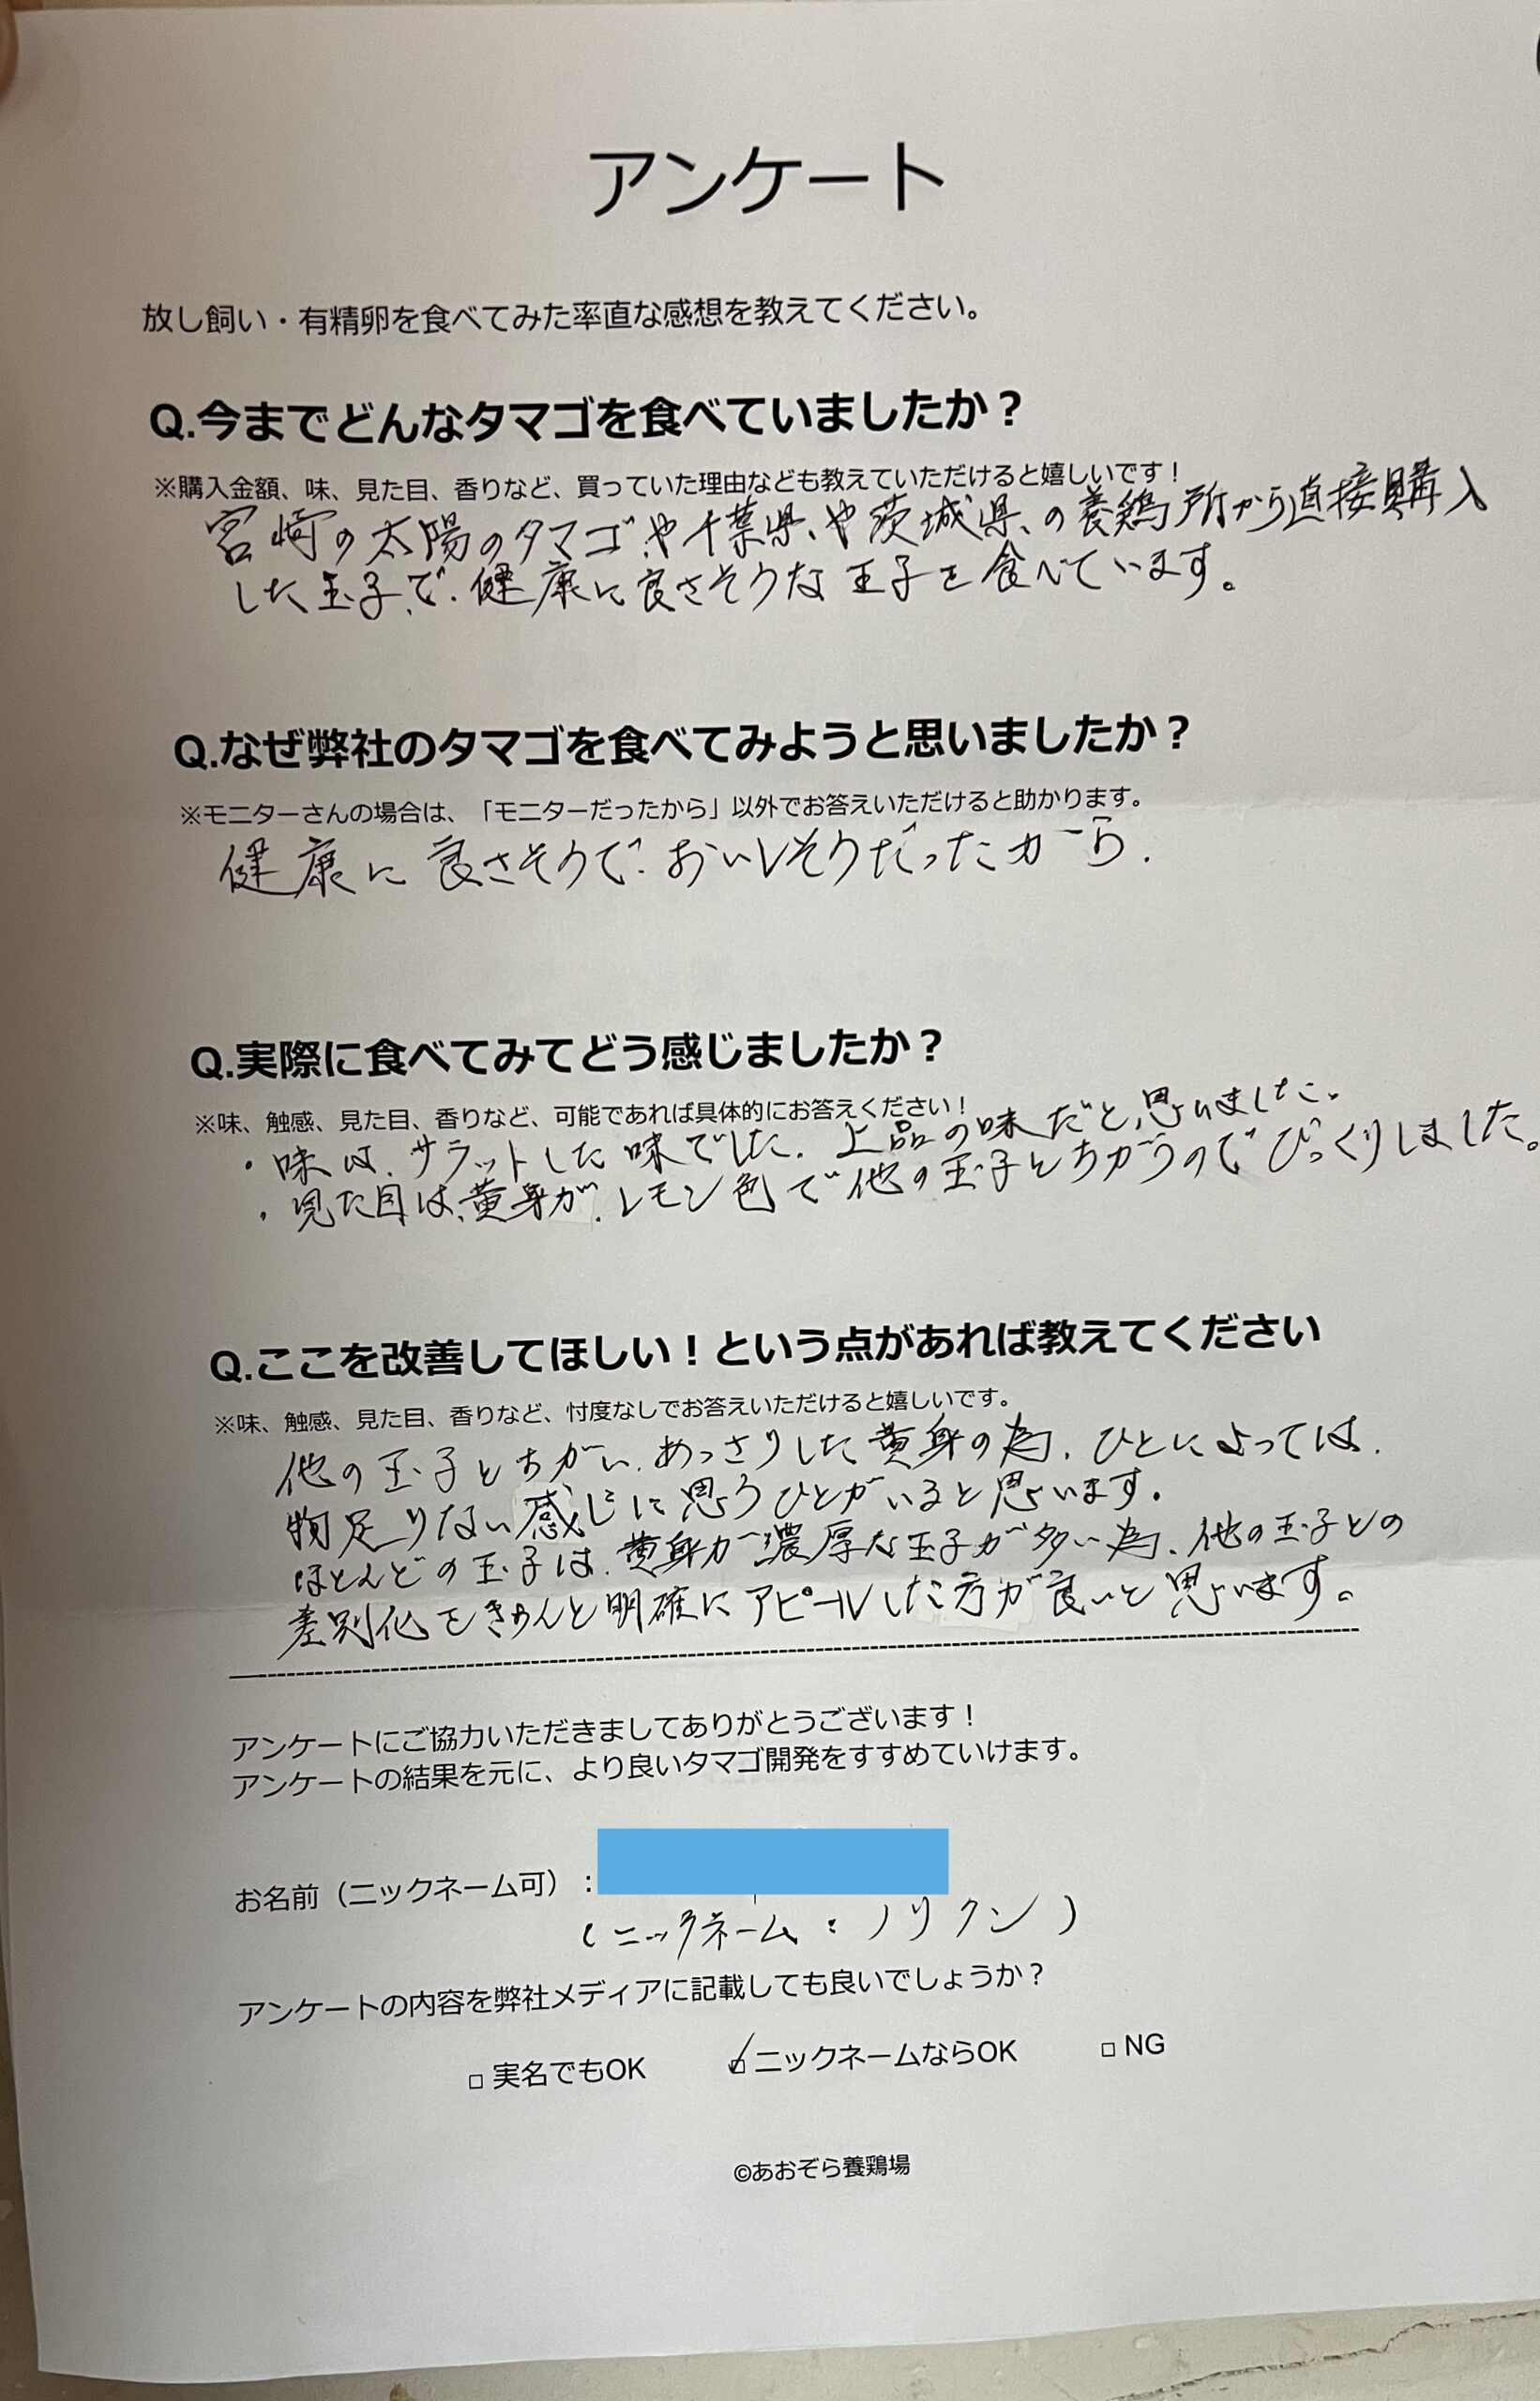 アンケート
放し飼い・有精卵を食べてみた率直な感想を教えてください。
Q.今までどんなタマゴを食べていましたか？
※購入金額、味、見た目、香りなど、買っていた理由なども教えていただけると嬉しいです！
宮崎の太陽のタマゴ、や千葉県、や茨城県、の養鶏所から直接購入
した玉子、で、健康に良さそうな玉子を食べています。
Q.なぜ弊社のタマゴを食べてみようと思いましたか？
※モニターさんの場合は、「モニターだったから」以外でお答えいただけると助かります。
健康に良さそうで、おいしそうだったから.
Q.実際に食べてみてどう感じましたか？
※味、触感、見た目、香りなど、可能であれば具体的にお答えください！
・味は、サラットした味でした、上品の味だと思いました。
・見た目は、黄身が、レモン色で他の玉子とちがうのでびっくりしました。
Q.ここを改善してほしい！という点があれば教えてください
※味、触感、見た目、香りなど、忖度なしでお答えいただけると嬉しいです。
他の玉子とちがい、あっさりした黄身の為、ひとによっては、
物足りない感じに思うひとがいると思います。
ほとんどの玉子は、黄身が濃厚な玉子が多い為、他の玉子との
差別化をきちんと明確にアピールした方が良いと思います。
アンケートにご協力いただきましてありがとうございます！
アンケートの結果を元に、より良いタマゴ開発をすすめていけます。
お名前（ニックネーム可）：
（ニックネーム：ノリクン）
アンケートの内容を弊社メディアに記載しても良いでしょうか？
□ 実名でもOK ☑ ニックネームならOK □ NG
©あおぞら養鶏場